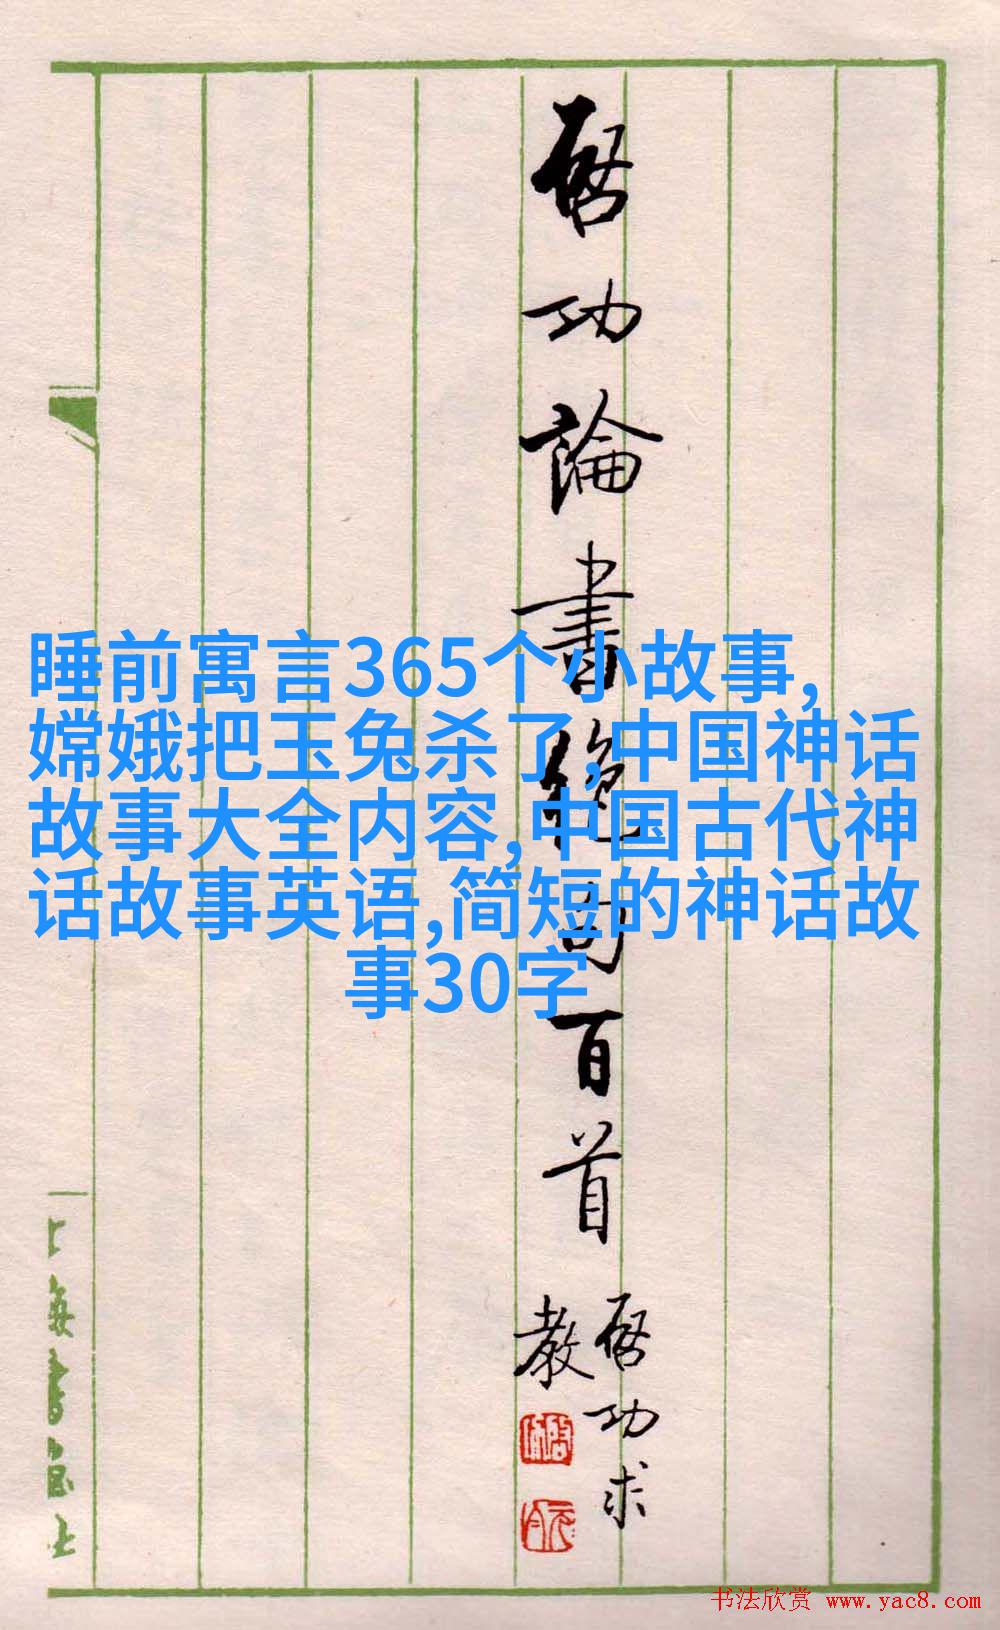 启功論書絕句百首
启功求
教
睡前寓言365个小故事,
嫦娥把玉兔杀了,中国神话
故事大全内容,中国古代神
话故事英语,简短的神话故
事30字
上海書画社
书法欣赏 www.yac8.com